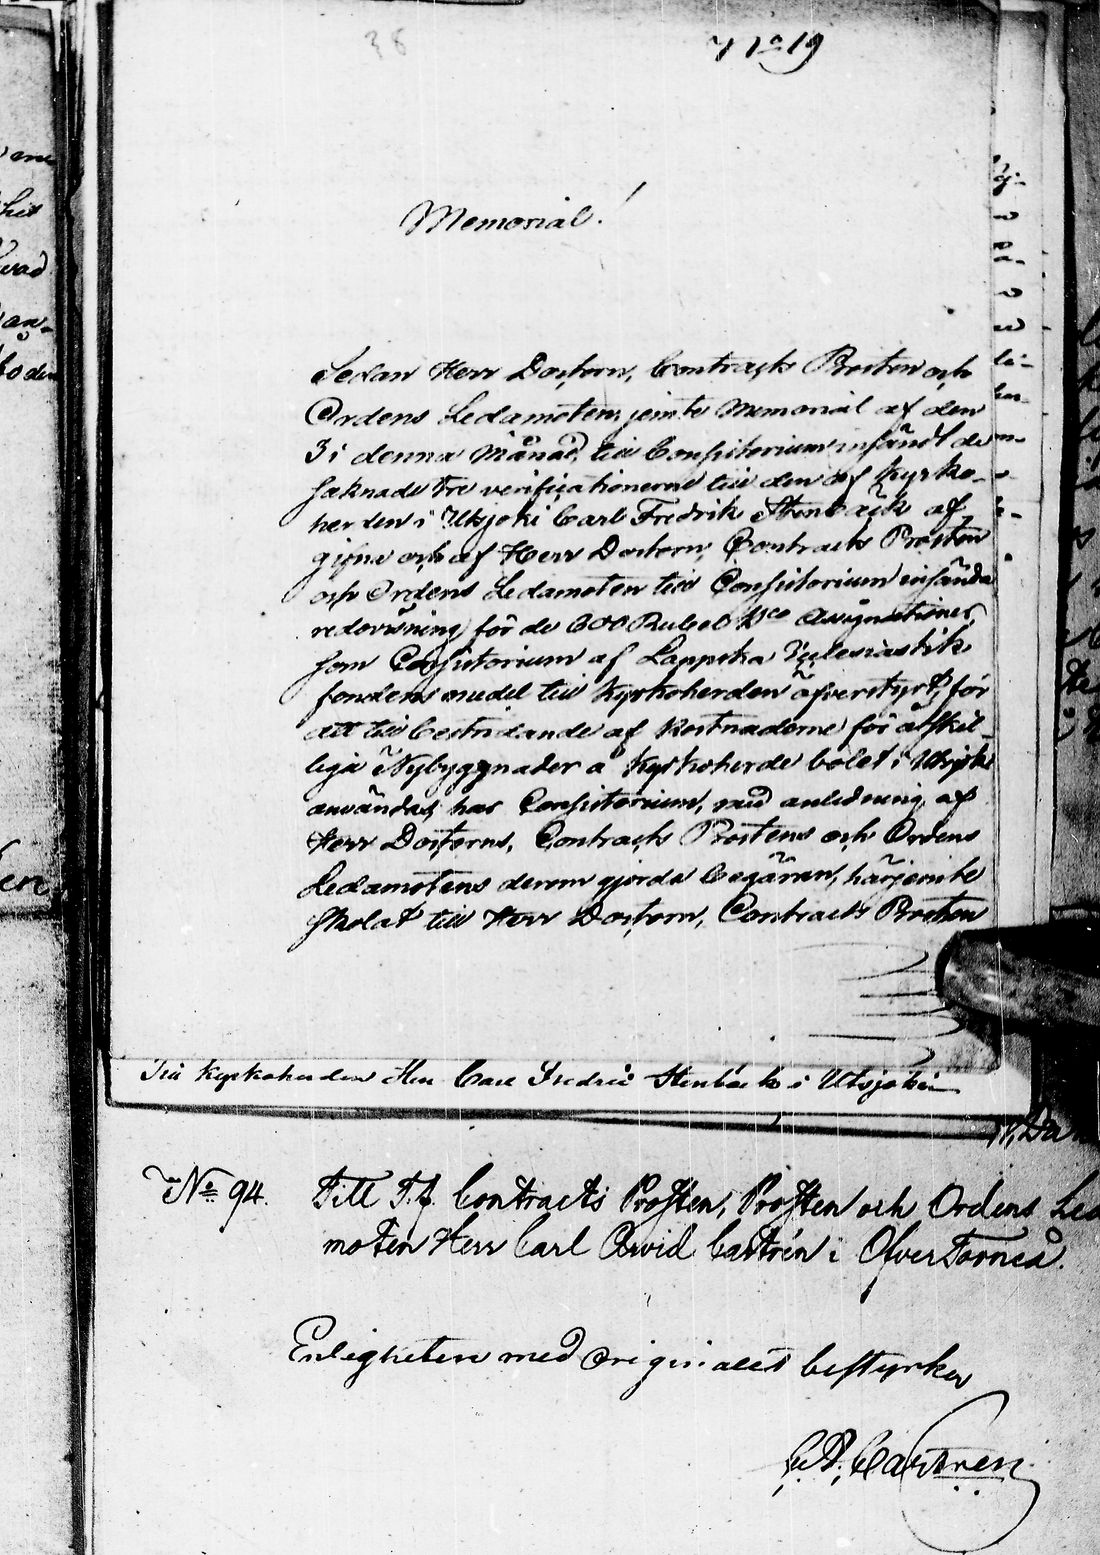 38
No 19
Memorial!
Sedan Herr Doctorn, Contracts Prosten och
Ordens Ledamoten, jemte Memorial af den
3 i denna Månad, till Consistorium insändt de
saknade tre verificationerne till den af Kyrko-
herden i Utsjoki Carl Fredrik Stenbäck af
gifne och af Herr Doctorn, Contracts Prosten
och Ordens Ledamoten till Consistorium insända
redovisning för de 600 Rubel Bco Assignationer,
som Consistorium af Lappska Ecclesiastik
fondens medel till Kyrkoherden öfverstyrt, för
att till bestridande af kostnaderne för åtskil-
liga Nybyggnader å Kyrkoherde bolet i Utsjoki
användas, har Consistorium, med anledning af
Herr Doctorns, Contracts Prostens och Ordens
Ledamotens derom gjorda begäran, härjemte
skolat till Herr Doctorn, Contracts Prosten
Till Kyrkoherden Herr Carl Fredric Stenbäck i Utsjoki
No 94. Till T. f. Contracts Prosten, Prosten och Ordens Leda
moten Herr Carl Arvid Castrén i Öfver Torneå.
Enligheten med Originalet bestyrker
C. A. Castrén